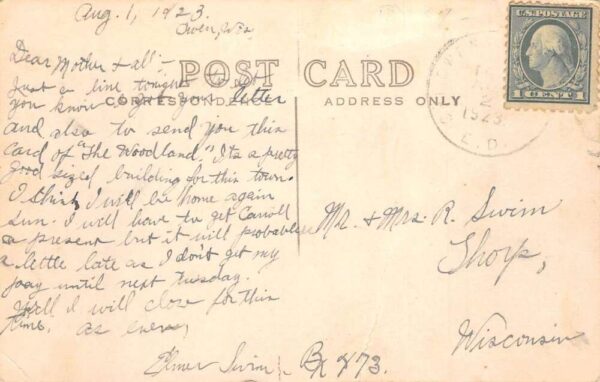 Aug. 1, 1923
Owen, Wis,
Dear Mother & all :-
Just a line tonight to let
you know I got your letter
and also to send you this
card of "The Woodland." Its a pretty
good sized building for this town.
I think I will be home again
Sun. I will have to get Carroll
a present but it will probably be
a little late as I don't get my
pay until next Tuesday.
Well I will close for this
time, as ever,
Elmer Swim
Bx 473.
POST CARD
CORRESPONDENCE
ADDRESS ONLY
1923
R.D.
U.S. POSTAGE
1 CENT 1
Mr. & Mrs. R. Swim
Thorp,
Wisconsin